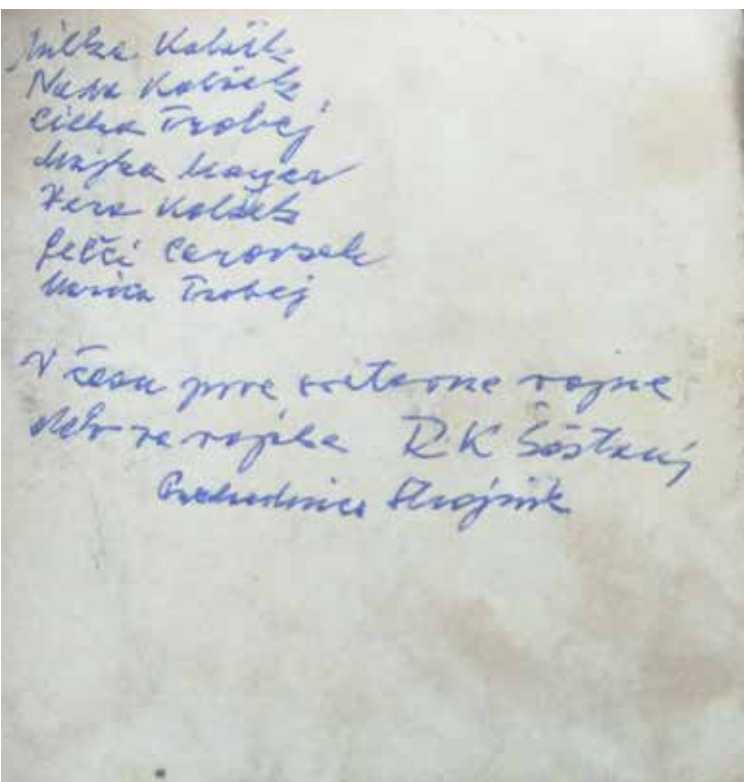 Milka Kolšek
Nada Kolšek
Cilka Trobej
Majka Mayer
Vera Kolšek
Pelči Carovšek
Marica Trobej
V času prve svetovne vojne
delo za vojska RK Šoštanj
Predsednica Strojnik